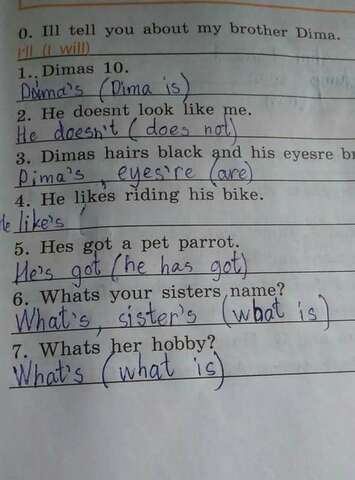 0. Ill tell you about my brother Dima.
I'll (I will)
1. Dimas 10.
Dima's (Dima is)
2. He doesnt look like me.
He doesn't (does not)
3. Dimas hairs black and his eyesre br
Dima's, eyes're (are)
4. He likes riding his bike.
He like's
5. Hes got a pet parrot.
He's got (he has got)
6. Whats your sisters name?
What's, sister's (what is)
7. Whats her hobby?
What's (what is)